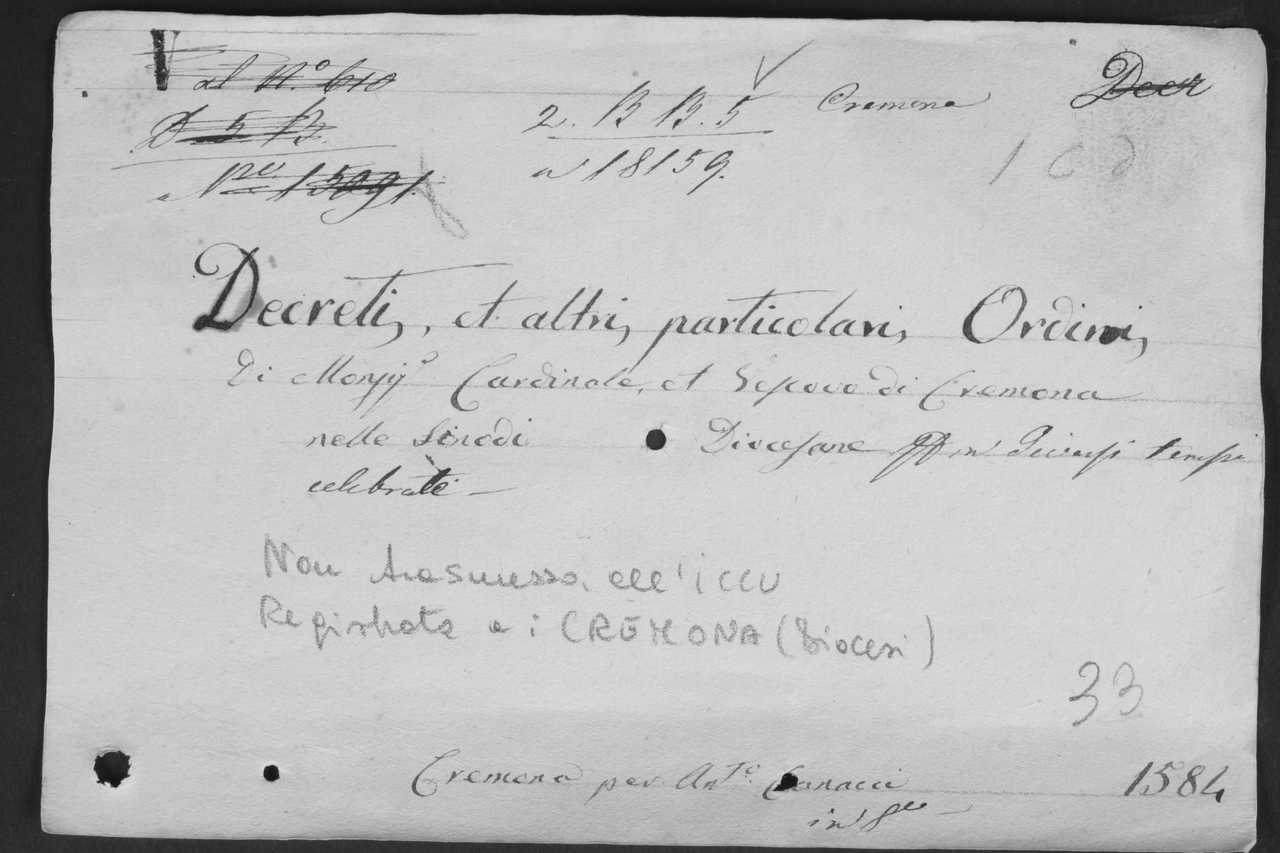 V al N.° 610
D 5 B.
N.ro 15091.
2. B B. 5
a 18159.
Cremona
Decr
Decreti, et altri, particolari, Ordini,
Di Monsig.r Cardinale, et Vescovo di Cremona
nelle Sinodi Diocesane in diversi tempi
celebrate —
Non trasmessa all'ICCU
Registrata a : CREMONA (Diocesi)
33
Cremona per Ant.o Canacci 1584
in 8.vo —